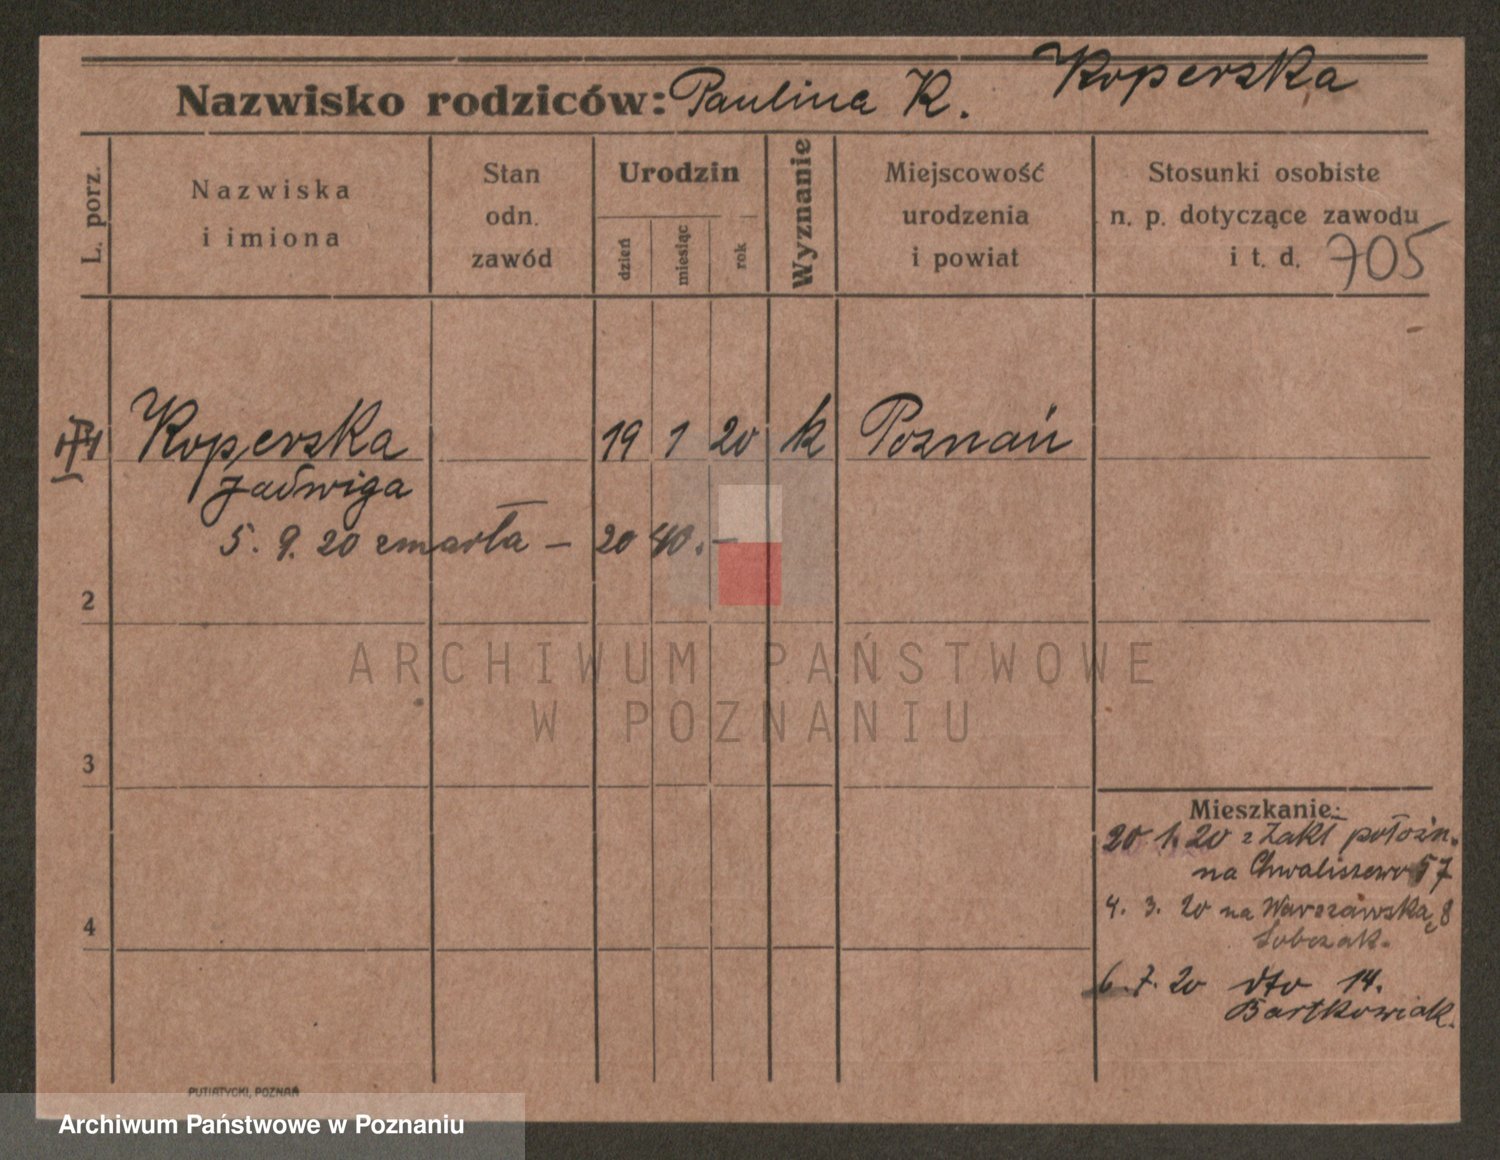 Nazwisko rodziców: Paulina K. Koperska
L. porz.
Nazwiska
i imiona
Stan
odn.
zawód
Urodzin
dzień
miesiąc
rok
Wyznanie
Miejscowość
urodzenia
i powiat
Stosunki osobiste
n. p. dotyczące zawodu
i t. d. 705
Koperska 19 1 20 k Poznań
Jadwiga
5. 9. 20 zmarła – 20 40. –
2
3
4
Mieszkanie:
20 1. 20 z Zakł położn.
na Chwaliszewo 57
4. 3. 20 na Warszawską 8
Sobczak.
6. 7. 20 dto 14.
Bartkowiak.
PUTIATYCKI, POZNAŃ
ARCHIWUM PAŃSTWOWE
W POZNANIU
Archiwum Państwowe w Poznaniu